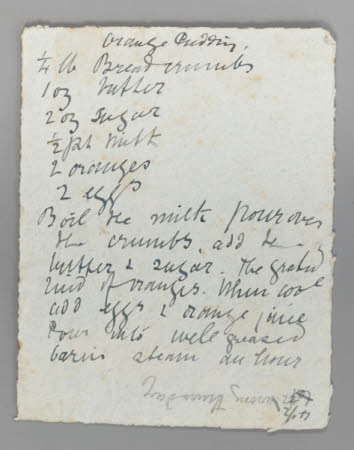 Orange Pudding
1/4 lb Bread crumbs
1 oz butter
2 oz sugar
1/2 pt milk
2 oranges
2 eggs
Boil the milk pour over
the crumbs, add the
butter & sugar. The grated
rind of oranges. When cool
add eggs & orange juice
Pour into well greased
basin steam an hour